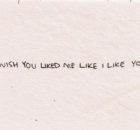 WISH YOU LIKED ME LIKE I LIKE YO